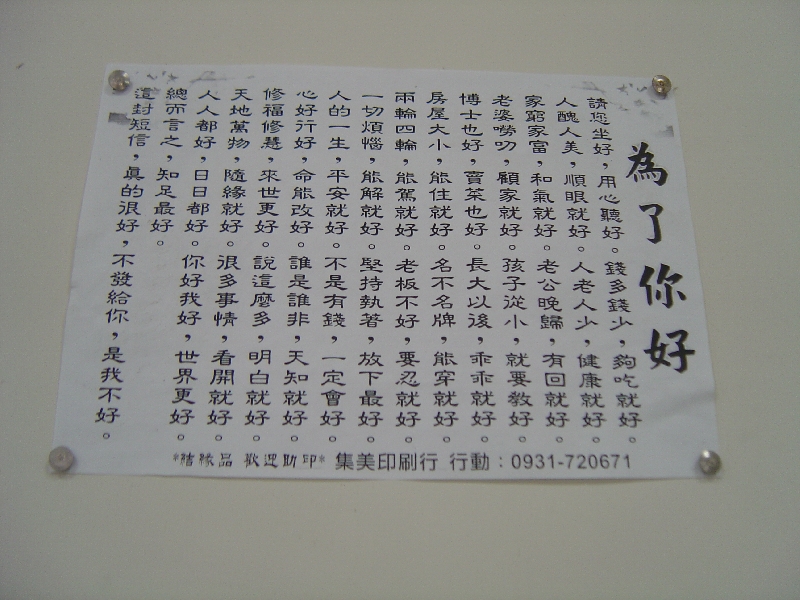 為了你好
請您坐好，用心聽好。錢多錢少，夠吃就好。
人醜人美，順眼就好。人老人少，健康就好。
家窮家富，和氣就好。老公晚歸，有回就好。
老婆嘮叨，顧家就好。孩子從小，就要教好。
博士也好，賣菜也好。長大以後，乖乖就好。
房屋大小，能住就好。名不名牌，能穿就好。
兩輪四輪，能駕就好。老板不好，要忍就好。
一切煩惱，能解就好。堅持執著，放下最好。
人的一生，平安就好。不是有錢，一定會好。
心好行好，命能改好。誰是誰非，天知就好。
修福修慧，來世更好。說這麼多，明白就好。
天地萬物，隨緣就好。很多事情，看開就好。
人人都好，日日都好。你好我好，世界更好。
總而言之，知足最好。
這封短信，真的很好，不發給你，是我不好。
*結緣品 歡迎助印* 集美印刷行 行動：0931-720671